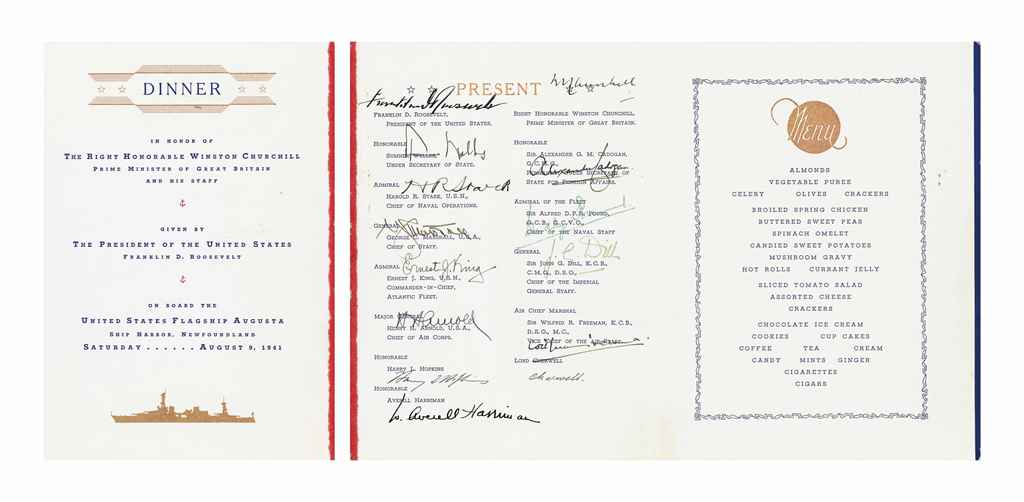 DINNER
IN HONOR OF
THE RIGHT HONORABLE WINSTON CHURCHILL
PRIME MINISTER OF GREAT BRITAIN
AND HIS STAFF
GIVEN BY
THE PRESIDENT OF THE UNITED STATES
FRANKLIN D. ROOSEVELT
ON BOARD THE
UNITED STATES FLAGSHIP AUGUSTA
SHIP HARBOR, NEWFOUNDLAND
SATURDAY . . . . . . . AUGUST 9, 1941
PRESENT
Franklin D Roosevelt
FRANKLIN D. ROOSEVELT,
PRESIDENT OF THE UNITED STATES.
HONORABLE
SUMNER WELLES,
UNDER SECRETARY OF STATE.
ADMIRAL
H R Stark
HAROLD R. STARK, U.S.N.,
CHIEF OF NAVAL OPERATIONS.
GENERAL
GEORGE C. MARSHALL, U.S.A.,
CHIEF OF STAFF.
ADMIRAL
Ernest J. King
ERNEST J. KING, U.S.N.,
COMMANDER-IN-CHIEF,
ATLANTIC FLEET.
MAJOR GENERAL
H H Arnold
HENRY H. ARNOLD, U.S.A.,
CHIEF OF AIR CORPS.
HONORABLE
HARRY L. HOPKINS
Harry L Hopkins
HONORABLE
AVERELL HARRIMAN
W. Averell Harriman
W Churchill
RIGHT HONORABLE WINSTON CHURCHILL,
PRIME MINISTER OF GREAT BRITAIN.
HONORABLE
SIR ALEXANDER G. M. CADOGAN,
G.C.M.G.,
Alexander Cadogan
SECRETARY OF
STATE FOR FOREIGN AFFAIRS.
ADMIRAL OF THE FLEET
SIR ALFRED D.P.R. POUND,
G.C.B., G.C.V.O.,
CHIEF OF THE NAVAL STAFF
GENERAL
J. G. Dill
SIR JOHN G. DILL, K.C.B.,
C.M.G., D.S.O.,
CHIEF OF THE IMPERIAL
GENERAL STAFF.
AIR CHIEF MARSHAL
SIR WILFRED R. FREEMAN, K.C.B.,
D.S.O., M.C.,
VICE CHIEF OF THE AIR STAFF.
LORD CHERWELL
Cherwell.
Menu
ALMONDS
VEGETABLE PUREE
CELERY OLIVES CRACKERS
BROILED SPRING CHICKEN
BUTTERED SWEET PEAS
SPINACH OMELET
CANDIED SWEET POTATOES
MUSHROOM GRAVY
HOT ROLLS CURRANT JELLY
SLICED TOMATO SALAD
ASSORTED CHEESE
CRACKERS
CHOCOLATE ICE CREAM
COOKIES CUP CAKES
COFFEE TEA CREAM
CANDY MINTS GINGER
CIGARETTES
CIGARS